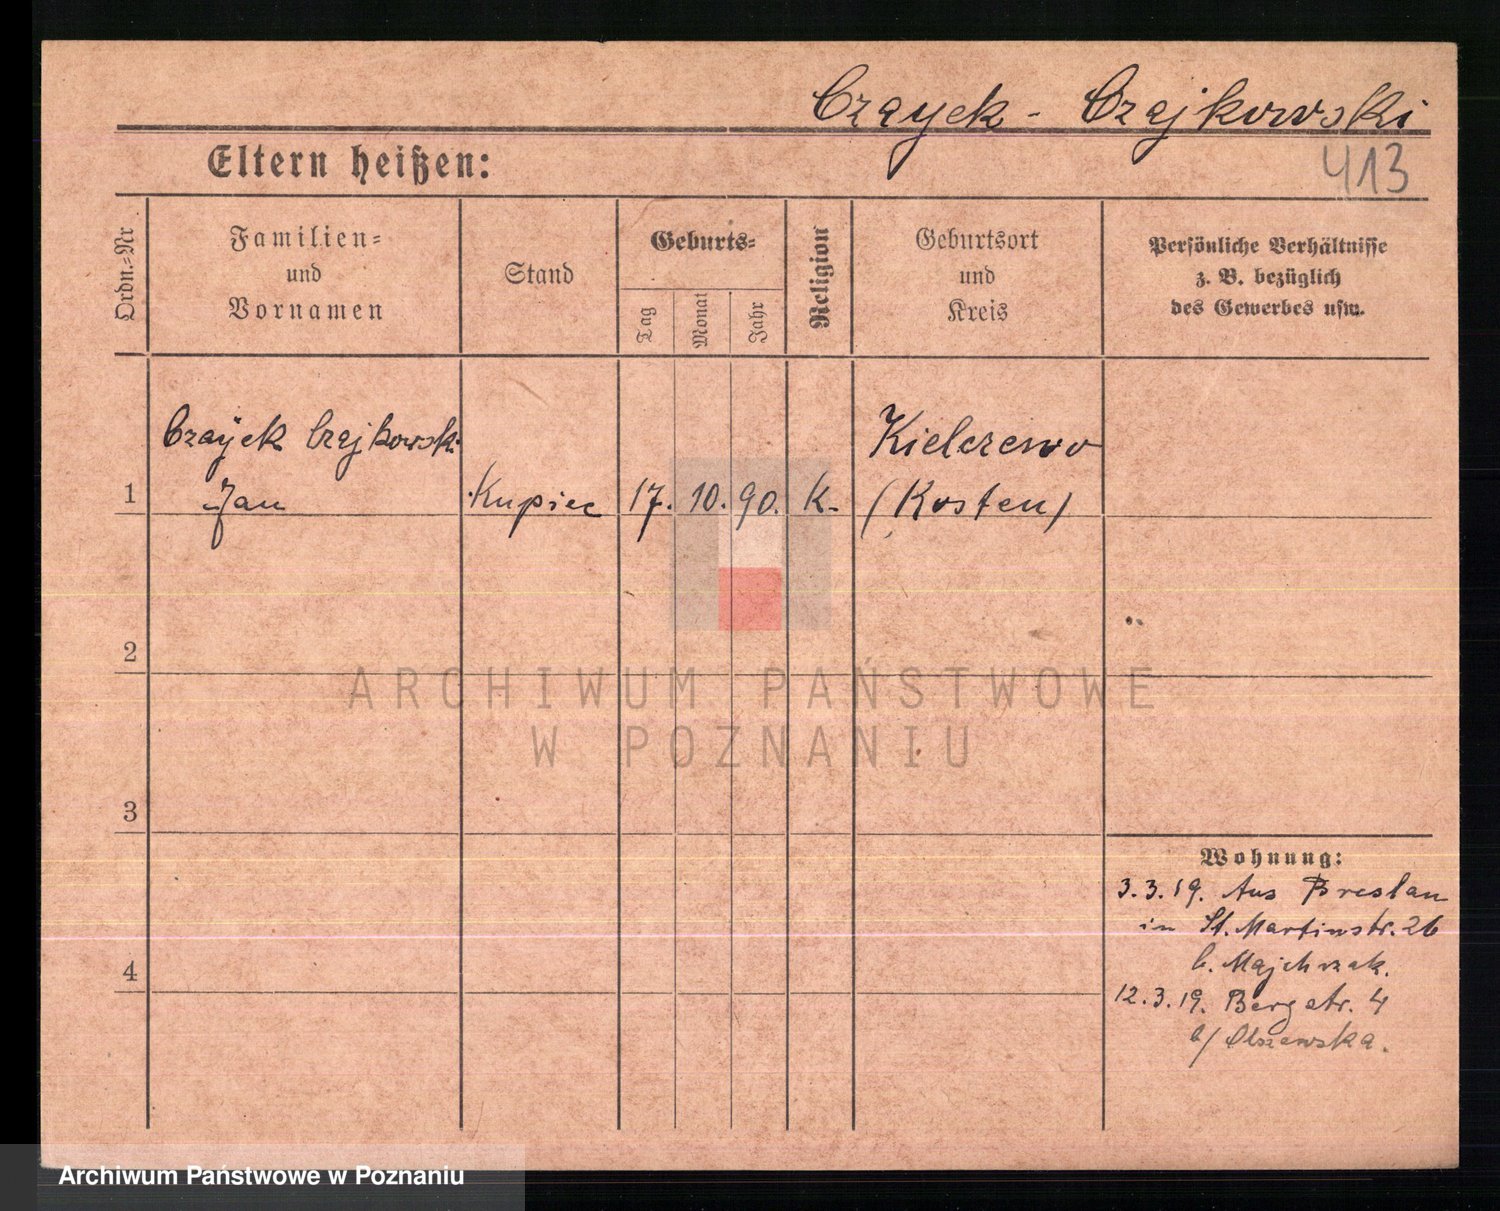 Czayek - Czajkowski
Eltern heißen:
413
Ordn.=Nr
Familien=
und
Vornamen
Stand
Geburts=
Tag
Monat
Jahr
Religion
Geburtsort
und
Kreis
Persönliche Verhältnisse
z. B. bezüglich
des Gewerbes usw.
Czayek Czajkowski
1 Jan Kupiec 17. 10. 90. K.
Kielczewo
(Kosten)
2
3
4
Wohnung:
3.3.19. Aus Breslau
in St. Martinstr. 26
b. Majchrzak.
12.3.19. Bergstr. 4
b/ Olszewska.
ARCHIWUM PAŃSTWOWE
W POZNANIU
Archiwum Państwowe w Poznaniu